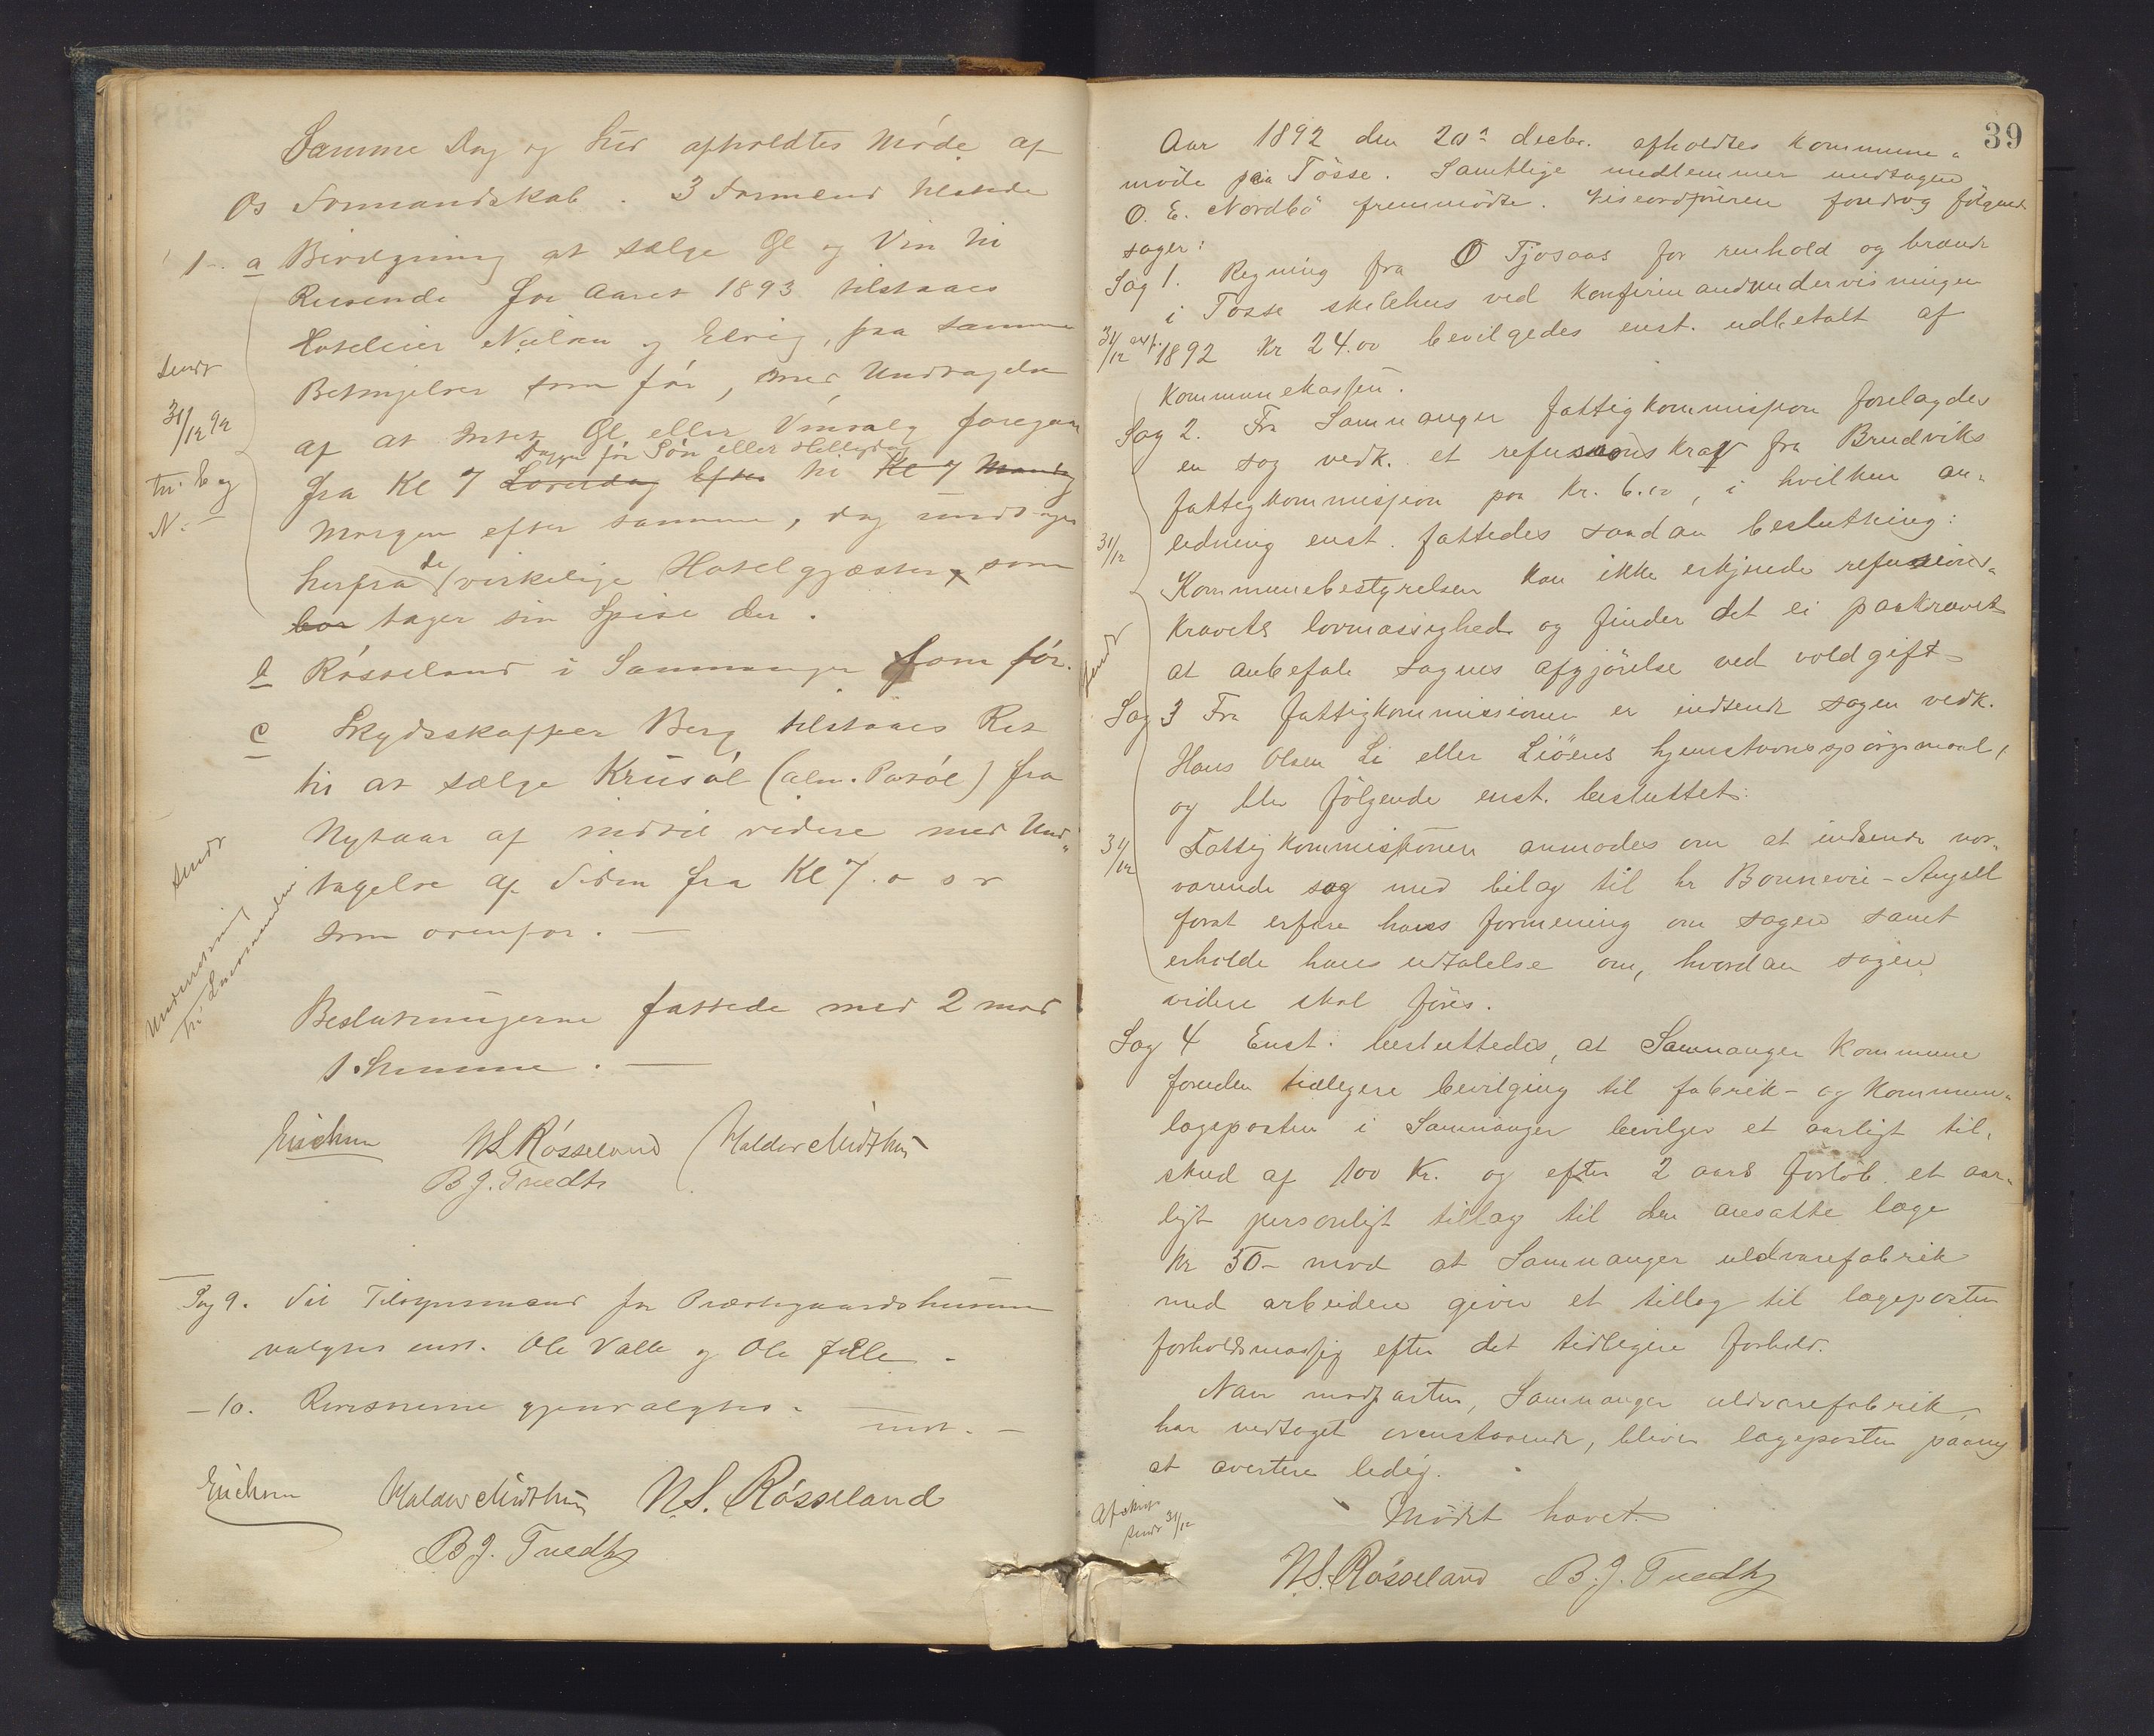 Samme Dag og Sted afholdtes Møde af
Os Formandskab. 3 Formænd tilstede
1. a Bevilgning at sælge Øl og Vin til
Reisende for Aaret 1893 tilstaaes
Hoteleier Nielsen og Elvig, paa samme
Betingelser som før, med Undtagelse
af at intet Øl eller Vinsalg foregaar
Dagen før Søn eller Helligdag
fra Kl 7 Løverdag Efter til Kl 7 Mandag
Morgen efter samme, dog undtages
herfra de virkelige Hotelgjæster, som
bor tager sin Spise der.
Sendt
31/12 92
til E og
N.
b Røsseland i Samnanger som før.
c Skydsskaffer Berg tilstaaes Ret
til at sælge Krusøl (alm. Potøl) fra
Nytaar af indtil videre med Und„
tagelse af Tiden fra Kl 7 o s v
som ovenfor. —
Sendt
Underretning
til Lensmanden
Beslutningerne fattede med 2 mod
1 Stemme. —
Erichsen NS. Røsseland Haldor Midthun
B J. Tvedt
Sag 9. Til Tilsynsmænd for Præstegaardshusene
valgtes enst. Ole Valle og Ole Fjelle.
— 10. Revisorerne gjenvalgtes.
enst. —
Erichsen Haldor Midthun NS. Røsseland
B J. Tvedt
39
Aar 1892 den 20de decbr. afholdtes kommune„
møde paa Tøsse. Samtlige medlemmer undtagen
O. E. Nordbø fremmødte. Viseordføreren foredrog følgende
sager:
Sag 1. Regning fra O Tjosaas for renhold og brænde
i Tøsse skolehus ved konfirmandundervisningen
31/12 exp.
1892 Kr 24.00 bevilgedes enst. udbetalt af
kommunekassen.
Sag 2. Fra Samnanger fattigkommission forelagdes
en sag vedk. et refusionskrav fra Brudviks
fattigkommission paa Kr. 6.00, i hvilken an„
31/12
ledning enst. fattedes saadan beslutning:
Kommunebestyrelsen kan ikke erkjende refusions„
kravets lovmæssighed og finder det ei paakrævet
Sendt
at anbefale sagens afgjørelse ved voldgift
Sag 3 Fra fattigkommissionen er indsendt sagen vedk.
Hans Olsen Li eller Liøens hjemstavnsspørgsmaal,
og blev følgende enst. besluttet:
31/12
Fattigkommissionen anmodes om at indsende nær„
værende sag med bilag til hr Bonnevie-Angell
forat erfare hans formening om sagen samt
erholde hans udtalelse om, hvordan sagen
videre skal føres.
Sag 4 Enst. besluttedes, at Samnanger kommune
foruden tidligere bevilging til fabrik- og kommune„
lægeposten i Samnanger bevilger et aarligt til„
skud af 100 Kr. og efter 2 aars forløb et aar„
ligt personligt tillæg til den ansatte læge
Kr 50– mod at Samnanger uldvarefabrik
med arbeidere giver et tillæg til lægeposten
forholdsmæssig efter det tidligere forhold.
Naar modparten, Samnanger uldvarefabrik,
har vedtaget ovenstaaende, bliver lægeposten paany
at avertere ledig.
Mødet hævet.
Afskrift
sendt 31/12
NS. Røsseland B. J. Tvedt